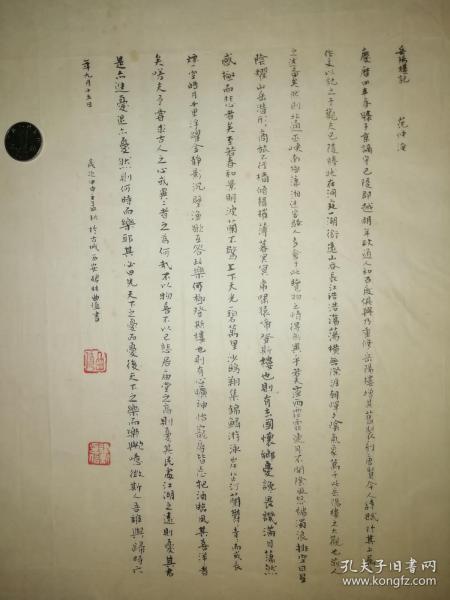 岳陽樓記 范仲淹
慶曆四年春滕子京謫守巴陵郡越明年政通人和百廢俱興乃重修岳陽樓增其舊制刻唐賢今人詩賦於其上屬予
作文以記之予觀夫巴陵勝狀在洞庭一湖銜遠山吞長江浩浩蕩蕩橫無際涯朝暉夕陰氣象萬千此岳陽樓之大觀也前人
之述備矣然則北通巫峽南極瀟湘遷客騷人多會于此覽物之情得無異乎若夫霪雨霏霏連月不開陰風怒號濁浪排空日星
隱耀山岳潛形商旅不行檣傾楫摧薄暮冥冥虎嘯猿啼登斯樓也則有去國懷鄉憂讒畏譏滿目蕭然
感極而悲者矣至若春和景明波瀾不驚上下天光一碧萬里沙鷗翔集錦鱗游泳岸芷汀蘭鬱青而或長
煙一空皓月千里浮躍金靜影沉璧漁歌互答此樂何極登斯樓也則有心曠神怡寵辱皆忘把酒臨風其喜洋者
矣嗟夫予嘗求古人之心或異二者之為何哉不以物喜不以己悲居廟堂之高則憂其民處江湖之遠則憂其君
是亦進憂退亦憂然則何時而樂耶其必曰先天下之憂而憂後天下之樂而樂歟噫微斯人吾誰與歸時六
年九月十五日
歲次甲申 秋於古城西安 書
孔夫子旧书网